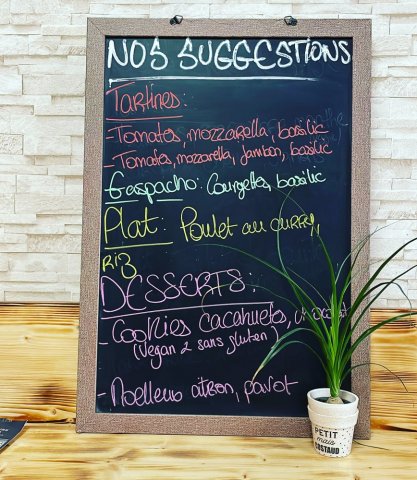 NOS SUGGESTIONS
Tartines:
-Tomates, mozzarella, basilic
-Tomates, mozzarella, jambon, basilic
Gaspacho: Courgettes, basilic
Plat: Poulet au curry,
Riz
DESSERTS:
-Cookies cacahuètes, chocolat
(Vegan & sans gluten)
-Moelleux citron, pavot
PETIT
mais
COSTAUD